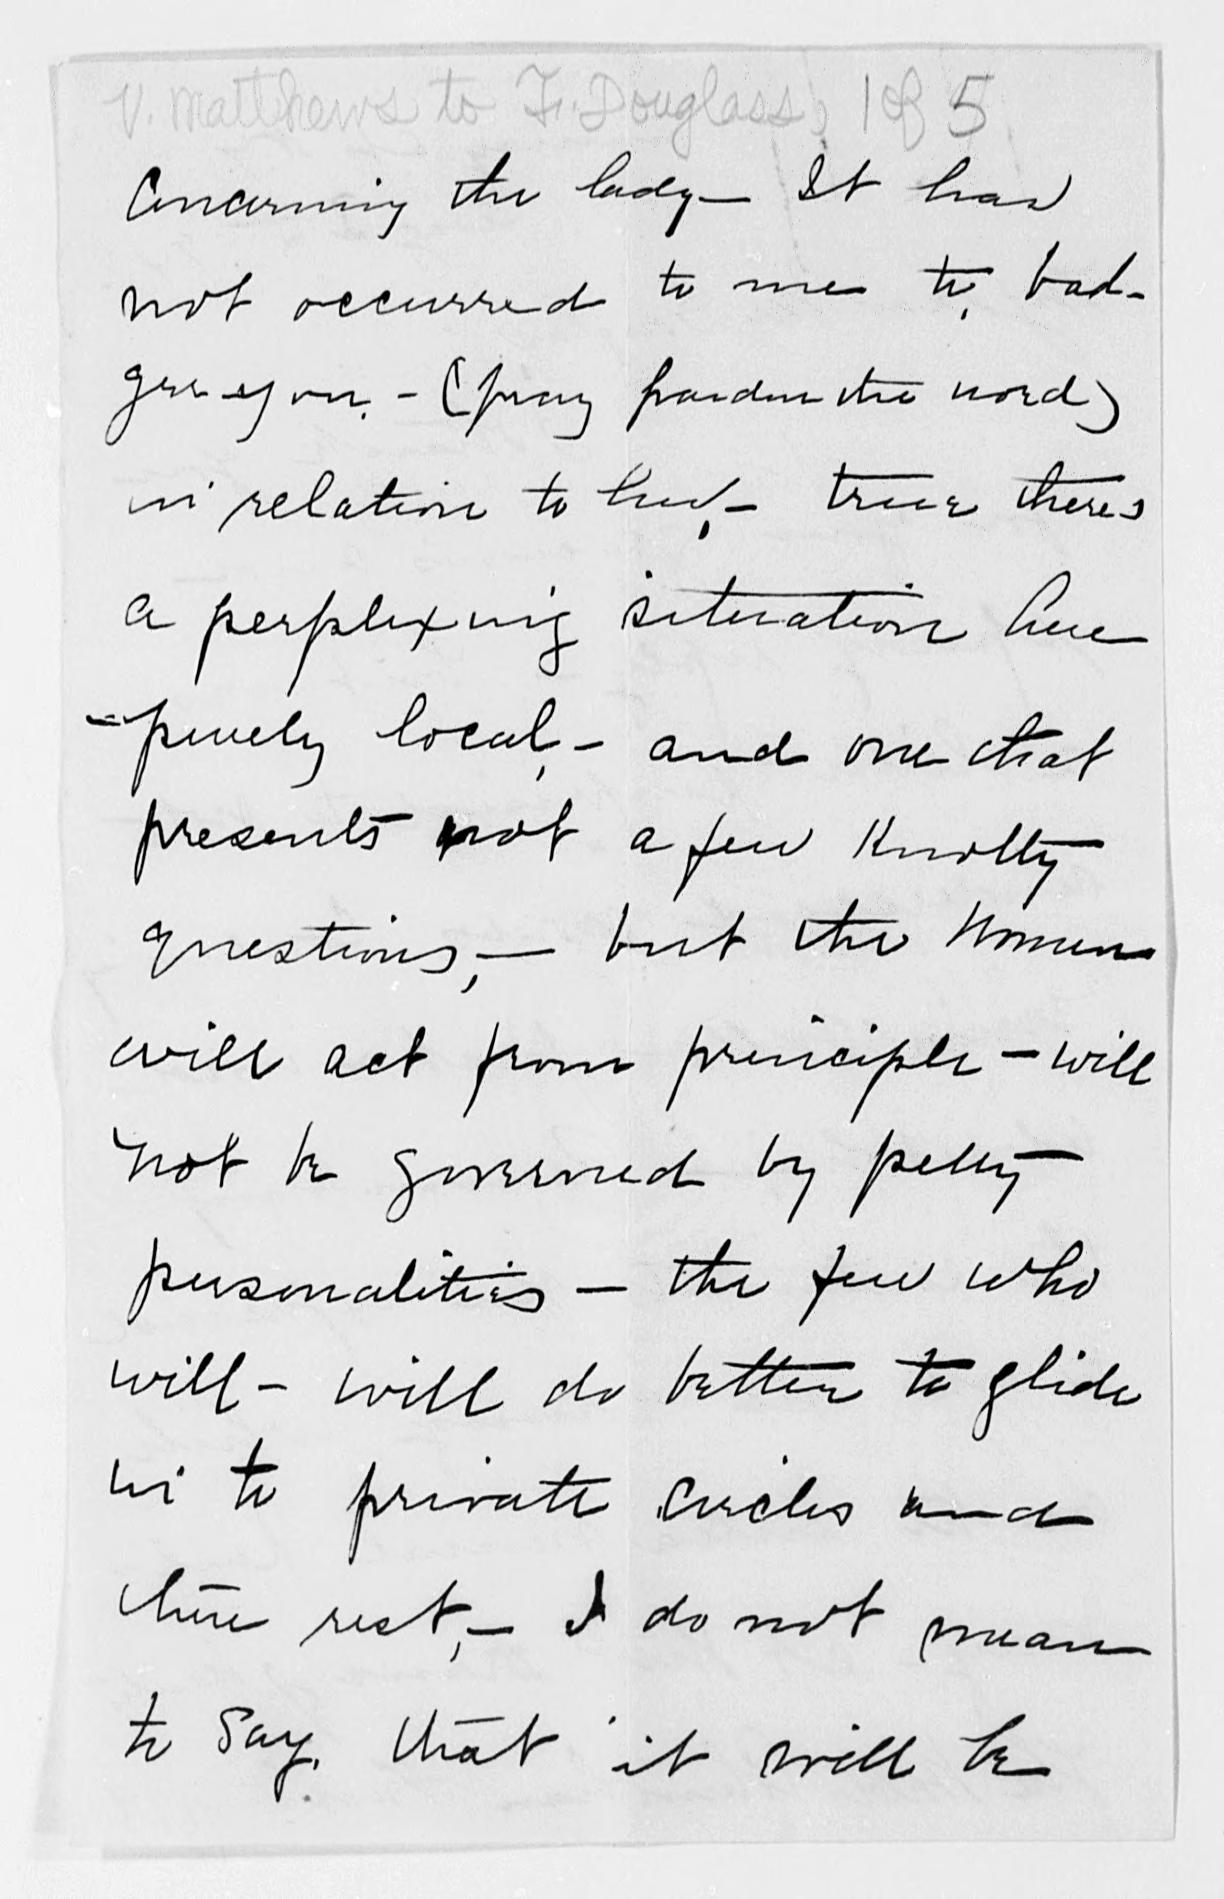 V. Matthews to F. Douglass, 1 of 5
Concerning the lady — It has
not occurred to me to, bad-
ger you. - (pray pardon the word)
in relation to her, — true there's
a perplexing situation here
- purely local, - and one that
presents not a few Knotty
questions, — but the Women
will act from principle — will
not be governed by petty
personalities — the few who
will - will do better to glide
in to private circles and
there rest, — I do not mean
to say. that it will be